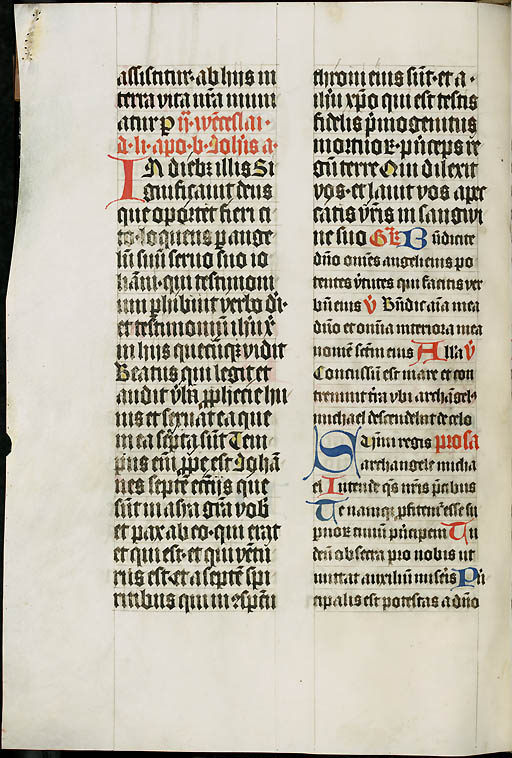 assistitur· ab hijs in
terra vita nr̄a muni
atur P ij· wēceslai·
d· li· apo· b· Joh̄is a·
IN dieb; illis Si
gnificauit deus
que oportet fieri ci
to· loquens p ange
lū suū seruo suo io
hāni· qui testimoni
um phibuit verbo dī·
et testimoniū ihū xp̄i
in hijs quecūq; vidit
Beatus qui legit et
audit v̄ba pphecie hu
ius et seruat ea que
in ea sc̄pta sūt Tem
pus eni ppe est Johā
nes septē ecc̄ijs que
sūt in asia gr̄a vob̄
et pax ab eo· qui erat
et qui est· et qui vētu
rus est· et a septē spi
ritibus qui in ꝯspc̄tu
throni eius sūt· et a·
ihū xp̄o qui est testis
fidelis p̄mogenitus
mortuor̄· p̄nceps re
gū terre Qui dilexit
vos· et lauit vos a pec
catis vr̄is in sangwi
ne suo Gr̄ Bn̄dicite
dn̄o om̄es angeli eius po
tentes v̄tutes qui facitis ver
bū eius V̄ Bn̄dic aīa mea
dn̄o et om̄ia interiora mea
nomē sc̄m eius Alla V̄
Concussū est mare et con
tremuit t̄ra vbi archāgels
michael descendebat de celo
Sūmi regis prosa
archangele micha
el Intende qs̄ nr̄is p̄cibus
Te namq; pfitem̄ esse su
pnor̄ ciuiū p̄ncipem Tu
deū obsecra pro nobis ut
mittat auxiliū mis̄eis P̄n
cipalis est potestas a dn̄o